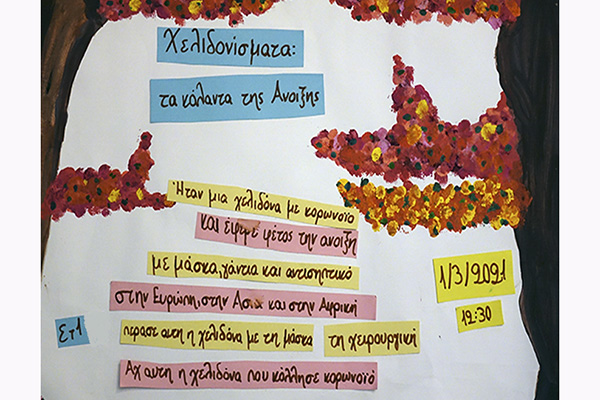 Χελιδονίσματα:
τα κάλαντα της Άνοιξης
Ήταν μια χελιδόνα με κορωνοϊό
και έφερε φέτος την ανοιξη
με μάσκα, γάντια και αντισηπτικό
στην Ευρώπη, στην Ασια και στην Αφρική
περασε αυτη η χελιδόνα με τη μάσκα τη χειρουργική
Αχ αυτη η χελιδόνα που κόλλησε κορωνοϊό
1/3/2021
12:30
Στ1